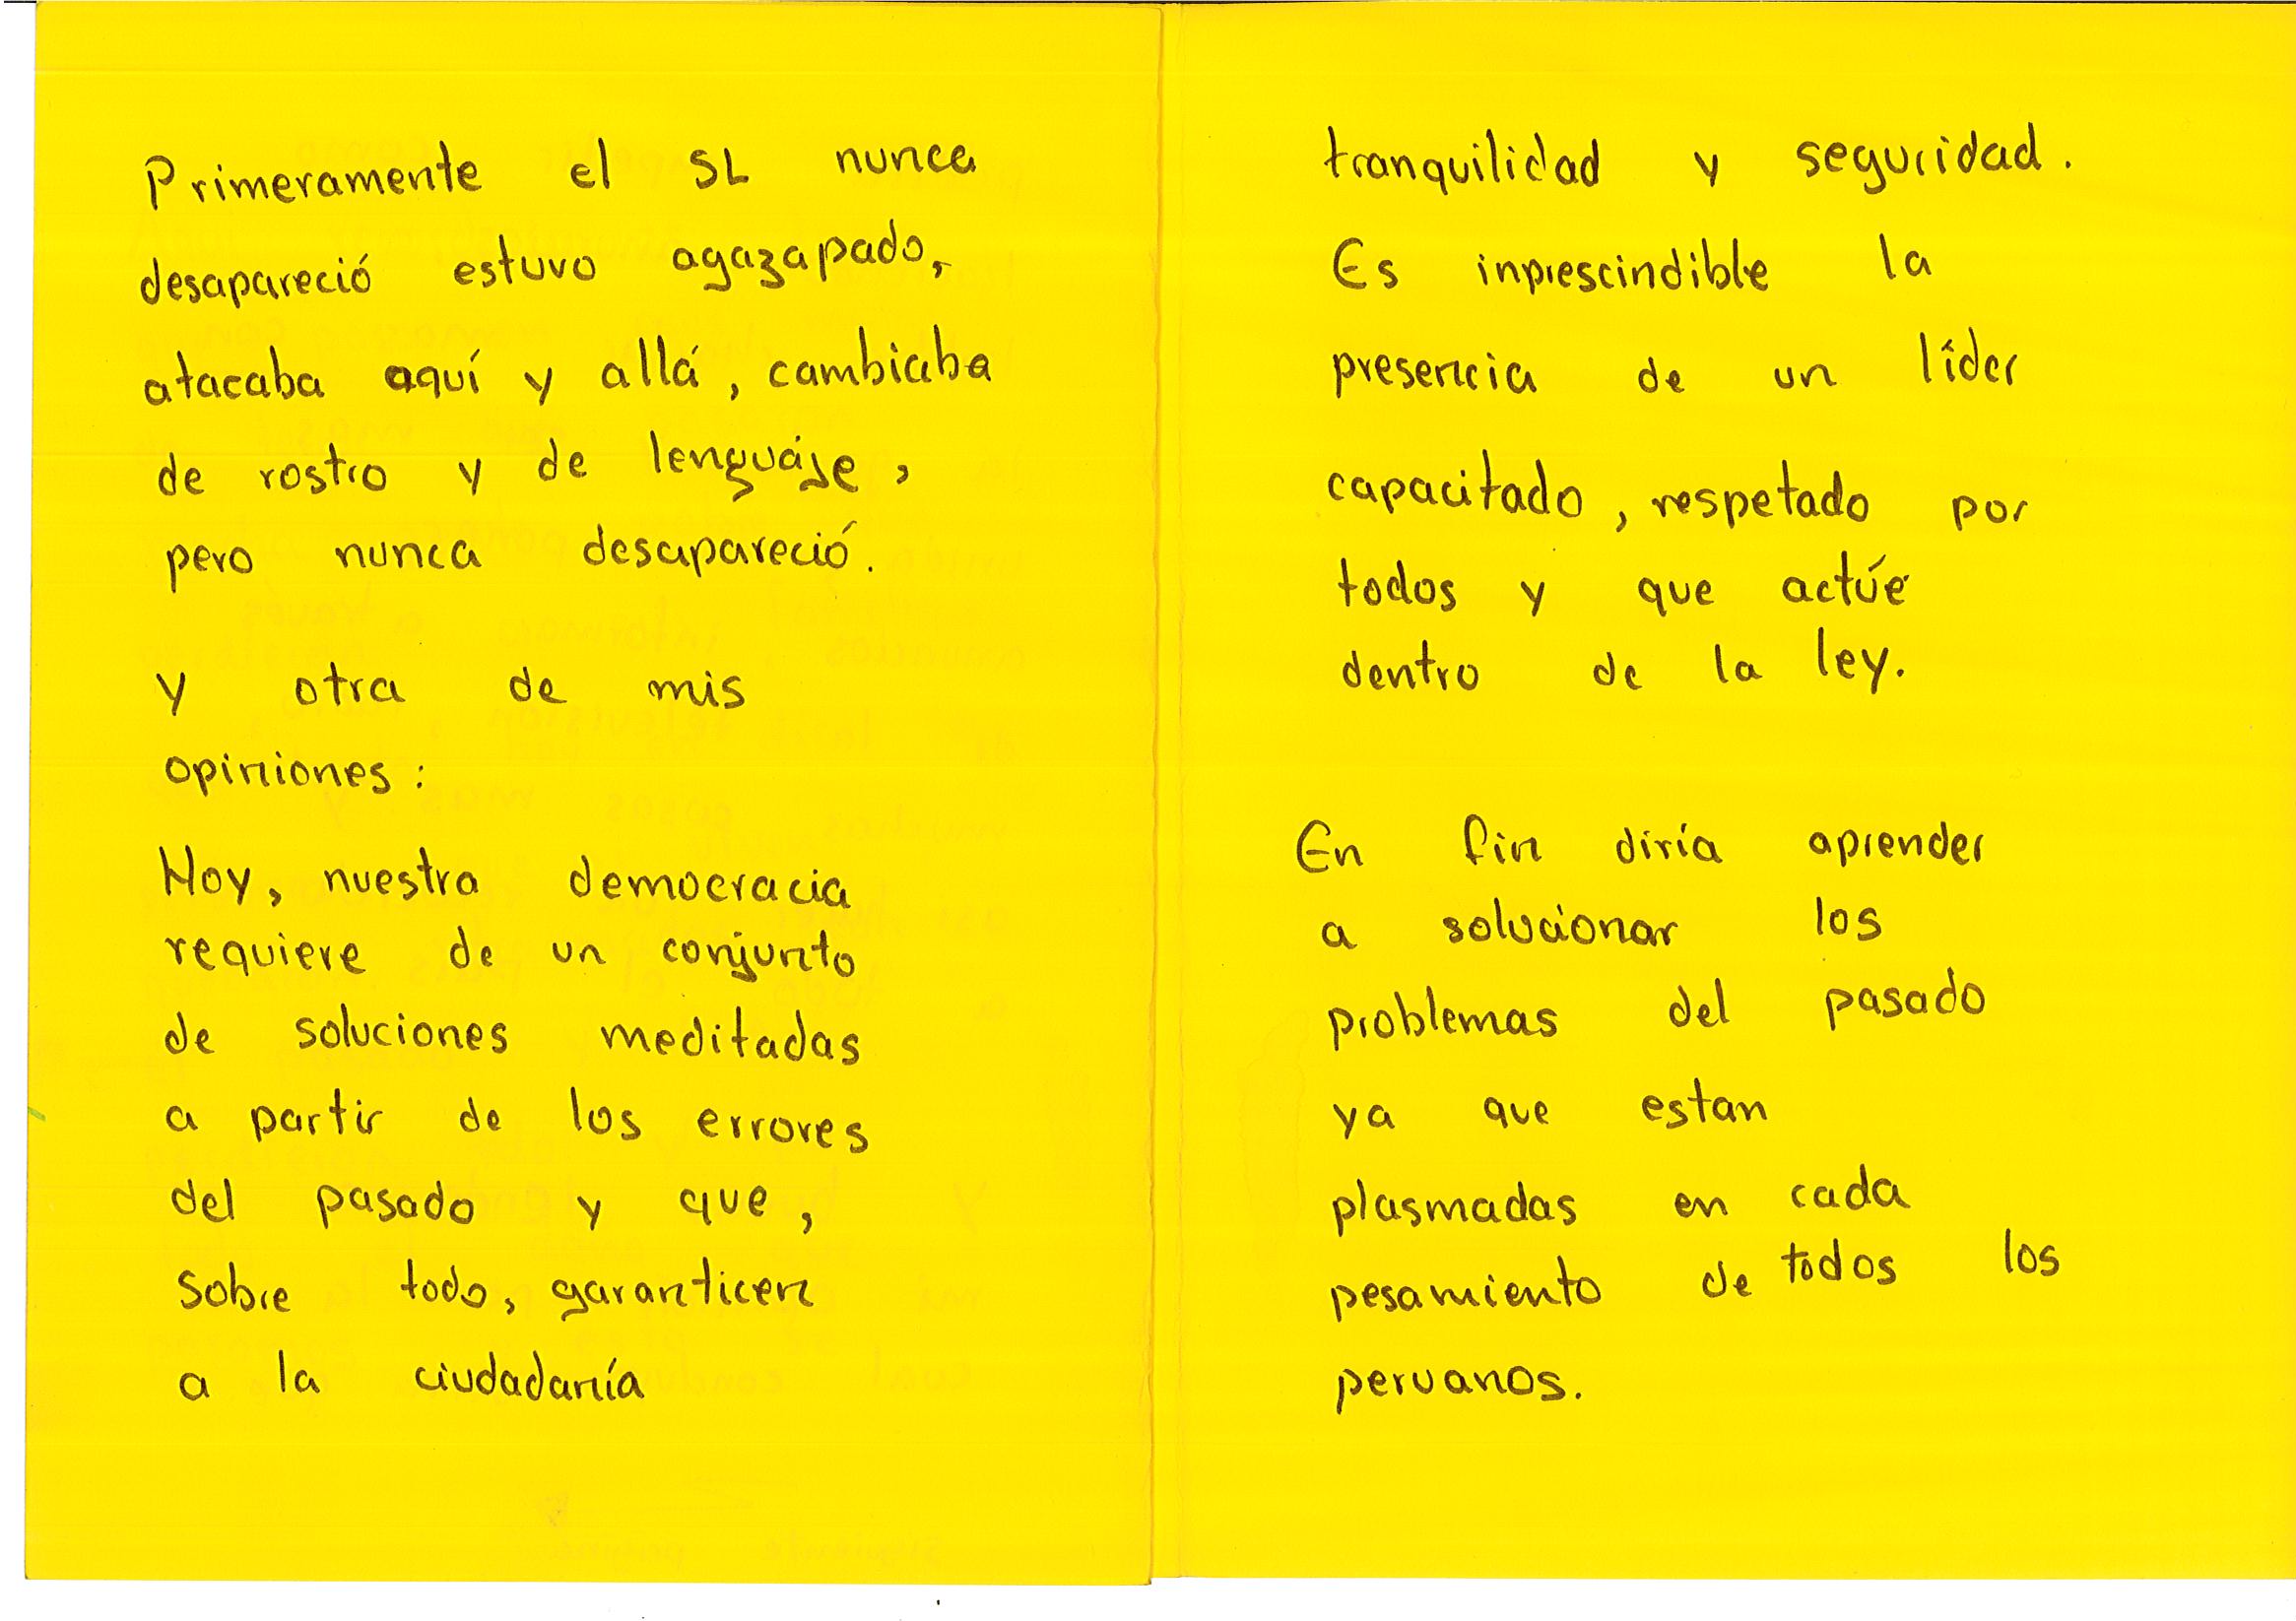 Primeramente el SL nunca
desapareció estuvo agazapado,
atacaba aquí y allá, cambiaba
de rostro y de lenguáje,
pero nunca desapareció.
y otra de mis
opiniones:
Hoy, nuestra democracia
requiere de un conjunto
de soluciones meditadas
a partir de los errores
del pasado y que,
sobre todo, garanticen
a la ciudadanía
tranquilidad y seguridad.
Es inprescindible la
presencia de un líder
capacitado, respetado por
todos y que actúe
dentro de la ley.
En fin diría aprender
a solucionar los
problemas del pasado
ya que estan
plasmadas en cada
pesamiento de todos los
peruanos.